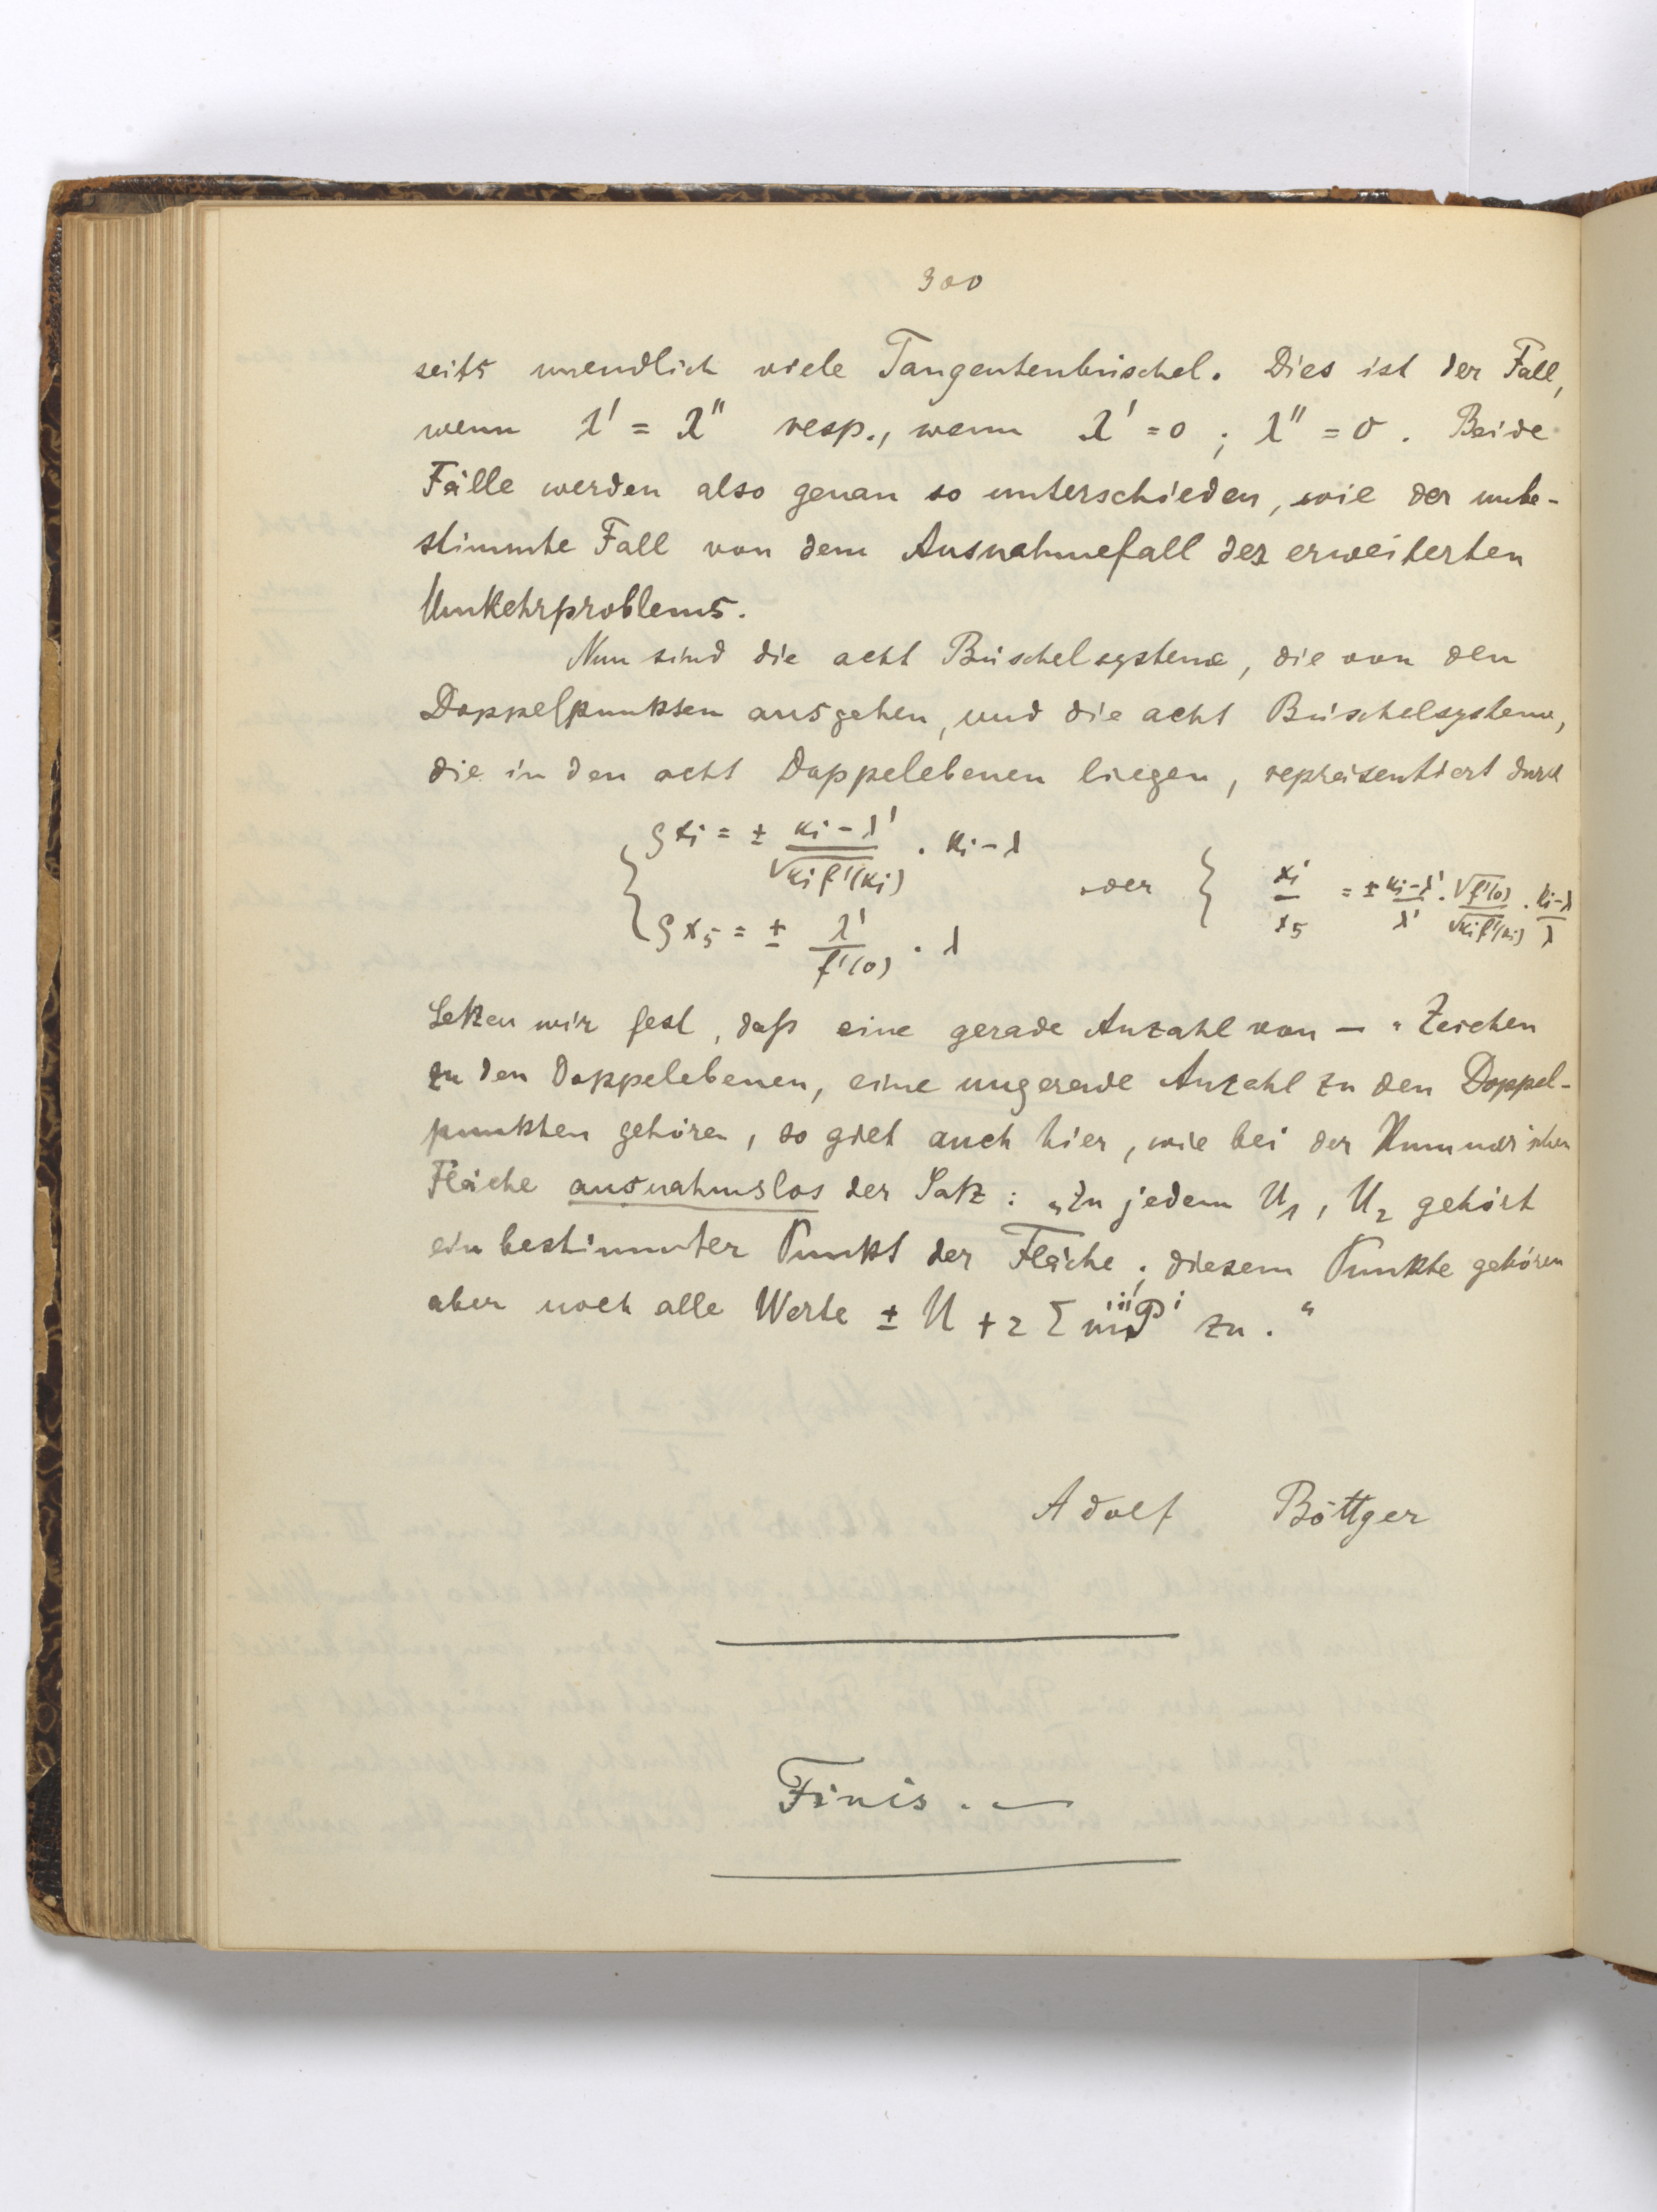 300
seits unendlich viele Tangentenbüschel. Dies ist der Fall,
wenn λ' = λ'' resp., wenn λ' = 0 ; λ'' = 0 . Beide
Fälle werden also genau so unterschieden, wie der unbe-
stimmte Fall von dem Ausnahmefall des erweiterten
Umkehrproblems.
Nun sind die acht Büschelsysteme, die von den
Doppelpunkten ausgehen, und die acht Büschelsysteme,
die in den acht Doppelebenen liegen, repräsentiert durch
{ ρxi = ± (κi − λ') / √(κi f'(κi)) . κi − λ
ρx5 = ± λ' / f'(0) . λ
oder { xi / x5 = ± (κi − λ') / λ' . √f'(0) / √(κi f'(κi)) . (κi − λ) / λ
Setzen wir fest, daß eine gerade Anzahl von — Zeichen
zu den Doppelebenen, eine ungerade Anzahl zu den Doppel-
punkten gehören, so gilt auch hier, wie bei der Kummer'schen
Fläche ausnahmslos der Satz: „Zu jedem U1, U2 gehört
ein bestimmter Punkt der Fläche; diesem Punkte gehören
aber noch alle Werte ± U + 2 Σ mi Pi zu."
Adolf Böttger
Finis. —